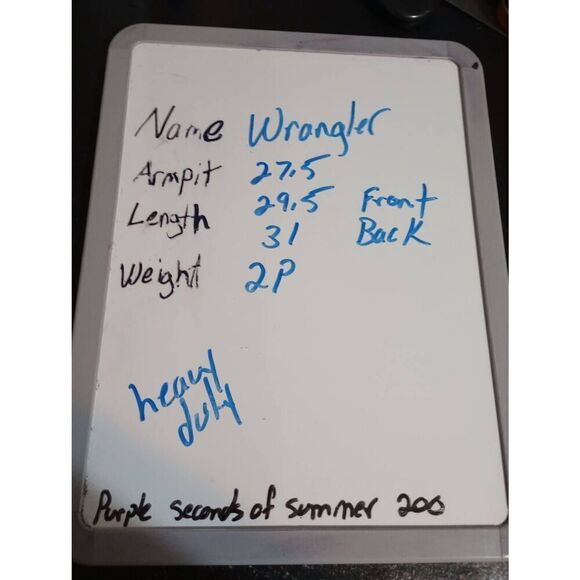 Name Wrangler
Armpit 27.5
Length 29.5 Front
31 Back
Weight 2P
heavy
duty
Purple seconds of summer 200